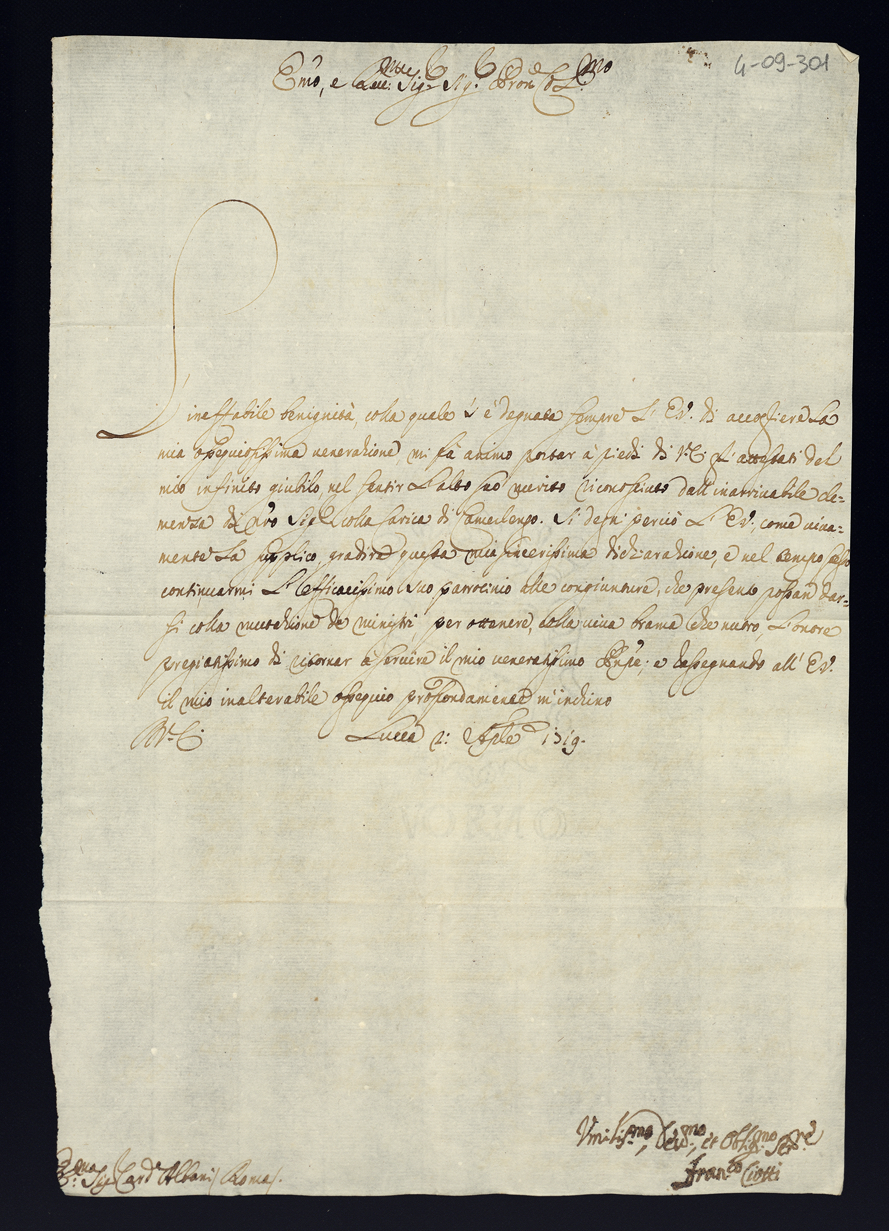 4-09-301
Em̃o, e Rev.me Sig.e Sig.e Pron
L'ineffabile benignità, colla quale s'è degnata sempre L'Ev. di accogliere la
mia ossequiosissima venerazione, mi fà animo portar à piedi di V.E. gl'attestati del
mio infinito giubilo, nel sentir L'alto suo merito riconosciuto dall'inarrivabile cle=
menza di Nr̃o Sig.e colla carica di Camerlengo. Si degni perciò L'Ev., come viva=
mente La supplico, gradire questa mia sincerissima dichiarazione, e nel tempo stesso
continuarmi L'efficacissimo suo patrocinio alle congiunture, che presento possan dar=
si colla mutazione de ministri, per ottenere, colla viva brama che nutro, L'onore
pregiatissimo di ritornar à servire il mio veneratissimo Pnp̃e; e rassegnando all'Ev.
il mio inalterabile ossequio profondamente m'inchino
Di V.E. Lucca 2: Aple 1719.
Umilis.mo, Dev.mo, et Obblig.mo Ser.re
Fran.co Ciotti
Sig. Card.e Albani Roma.